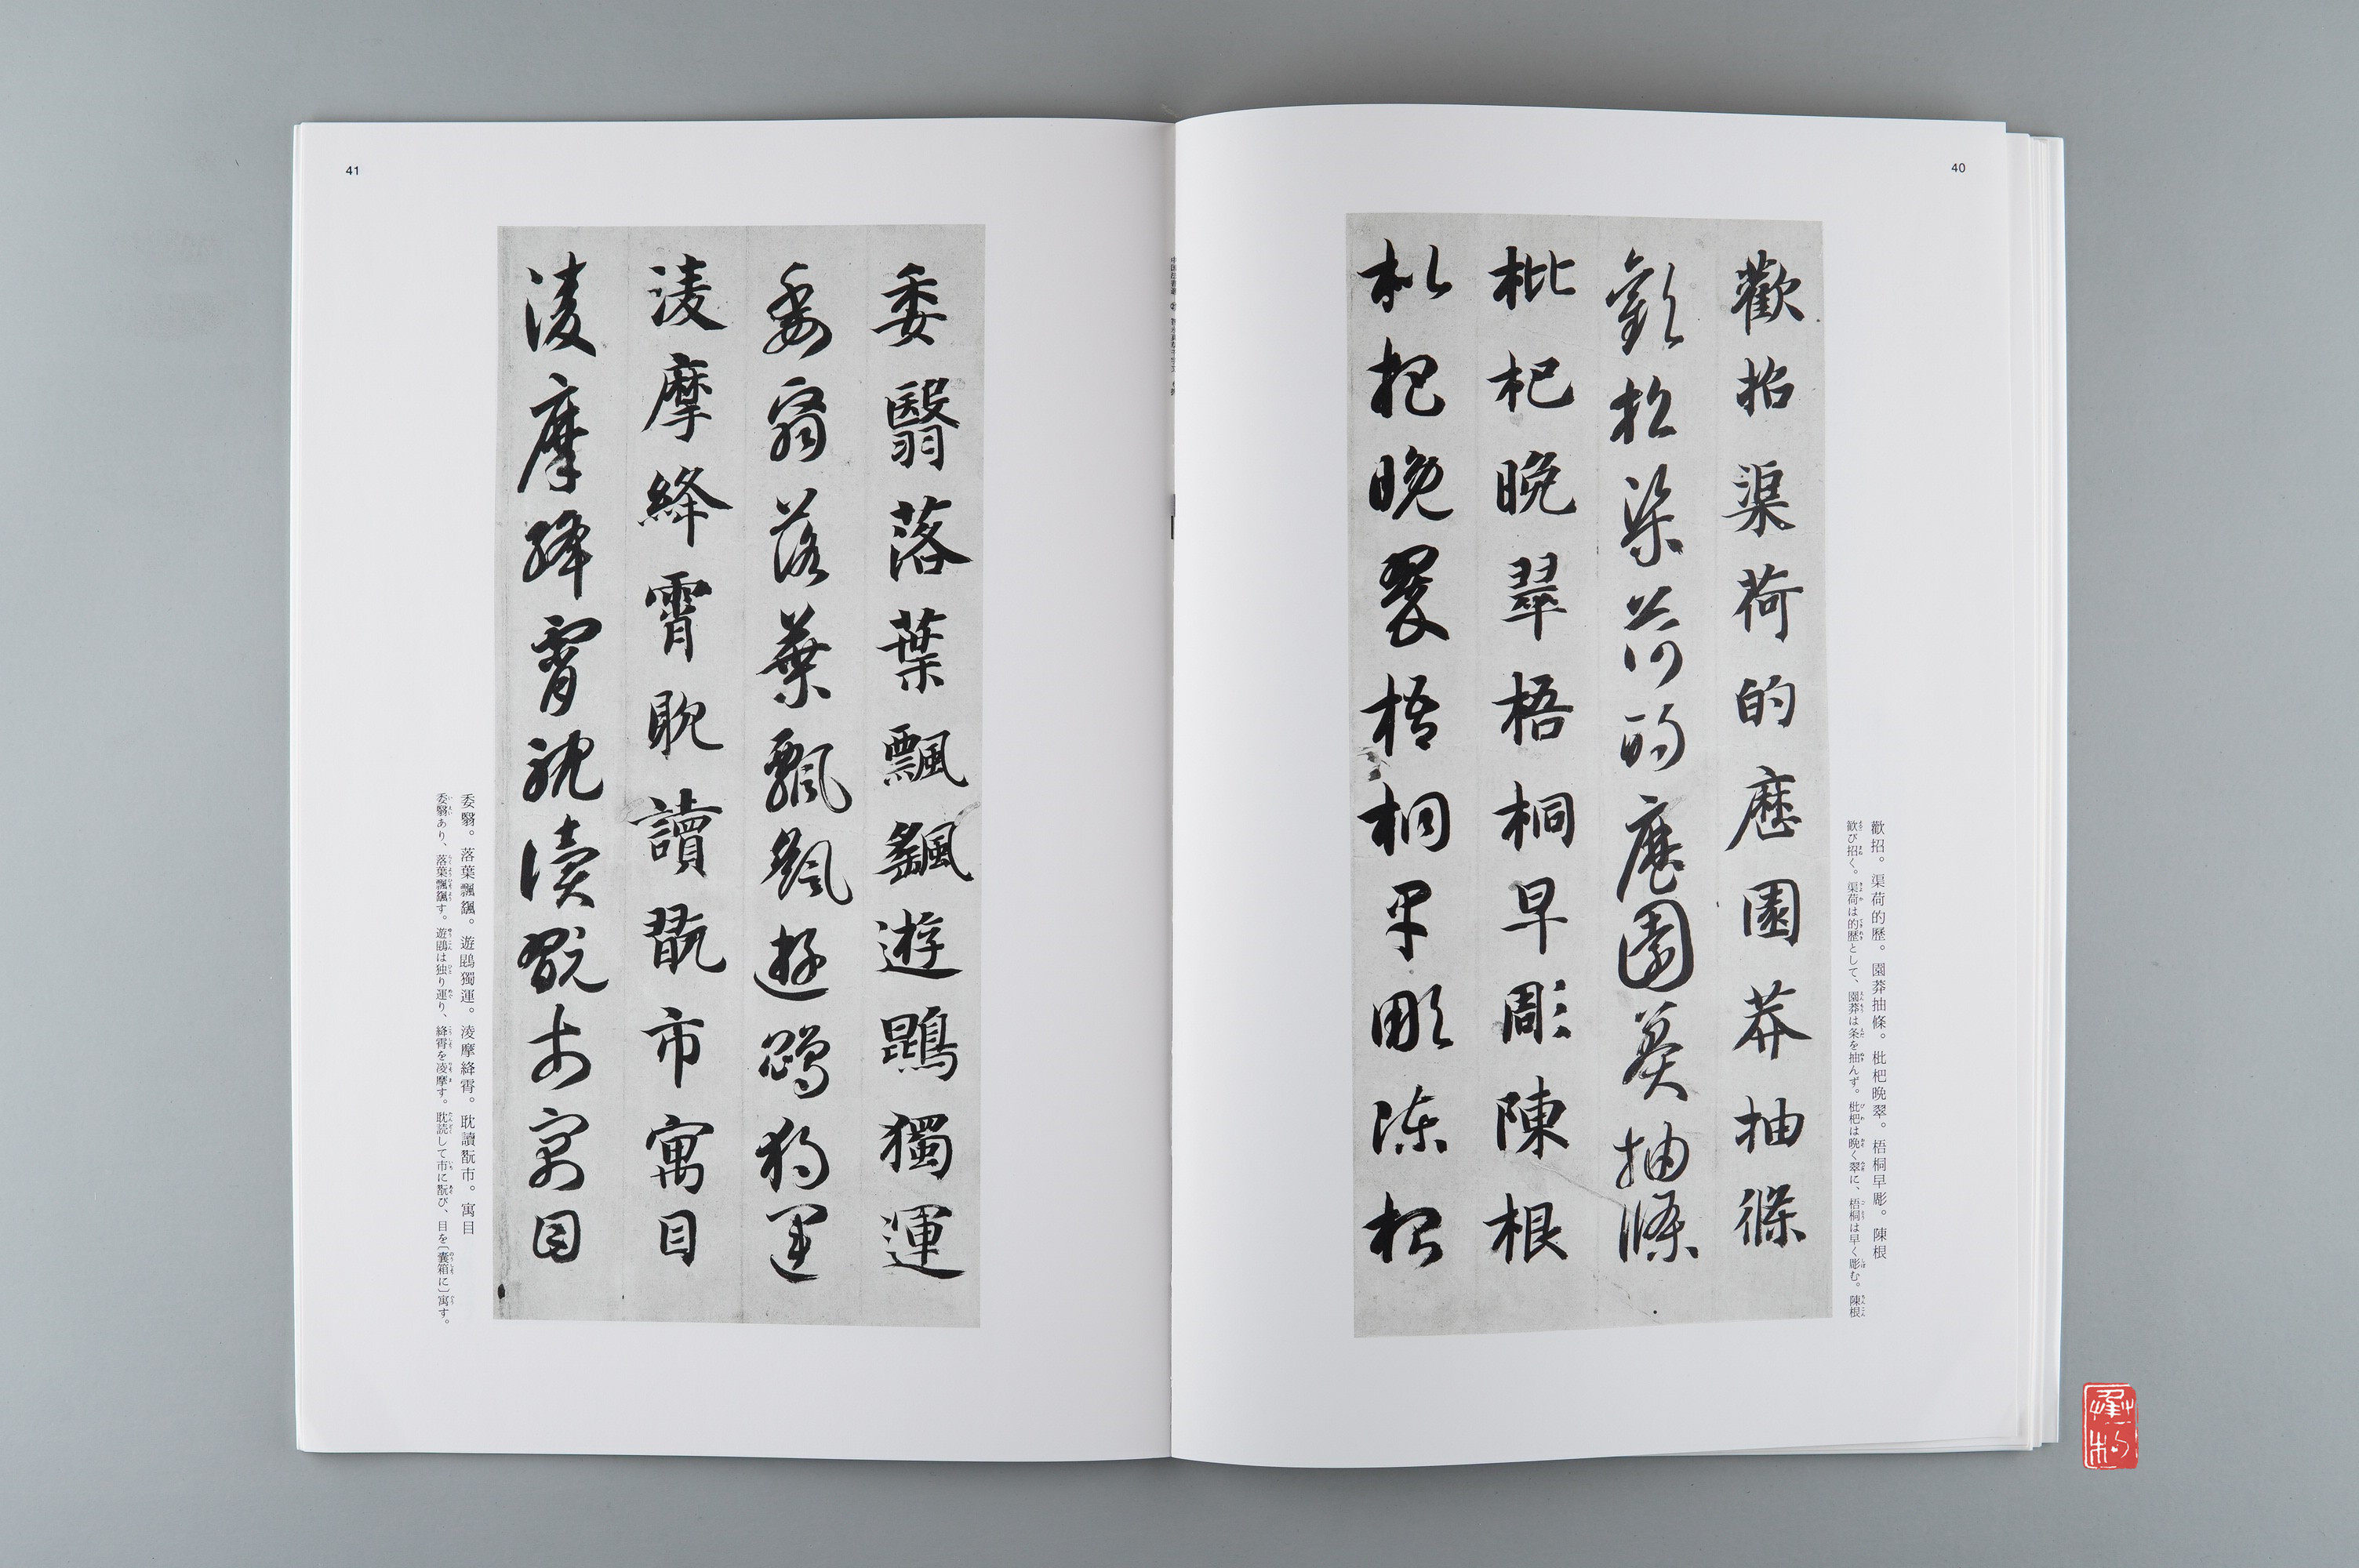 40
歡招渠荷的歷園莽抽條
歡招渠荷的歷園莽抽條
枇杷晚翠梧桐早彫陳根
枇杷晚翠梧桐早彫陳根
歡招。渠荷的歷。園莽抽條。枇杷晩翠。梧桐早彫。陳根
歓び招く。渠荷は的歴として、園莽は条を抽んず。枇杷は晩く翠に、梧桐は早く彫む。陳根
41
委翳落葉飄颻遊鵾獨運
委翳落葉飄颻遊鵾獨運
淩摩絳霄耽讀翫市寓目
淩摩絳霄耽讀翫市寓目
委翳。落葉飄颻。遊鵾獨運。淩摩絳霄。耽讀翫市。寓目
委翳あり、落葉飄颻す。遊鵾は独り運り、絳霄を凌摩す。耽読して市に翫び、目を〔嚢箱に〕寓す。